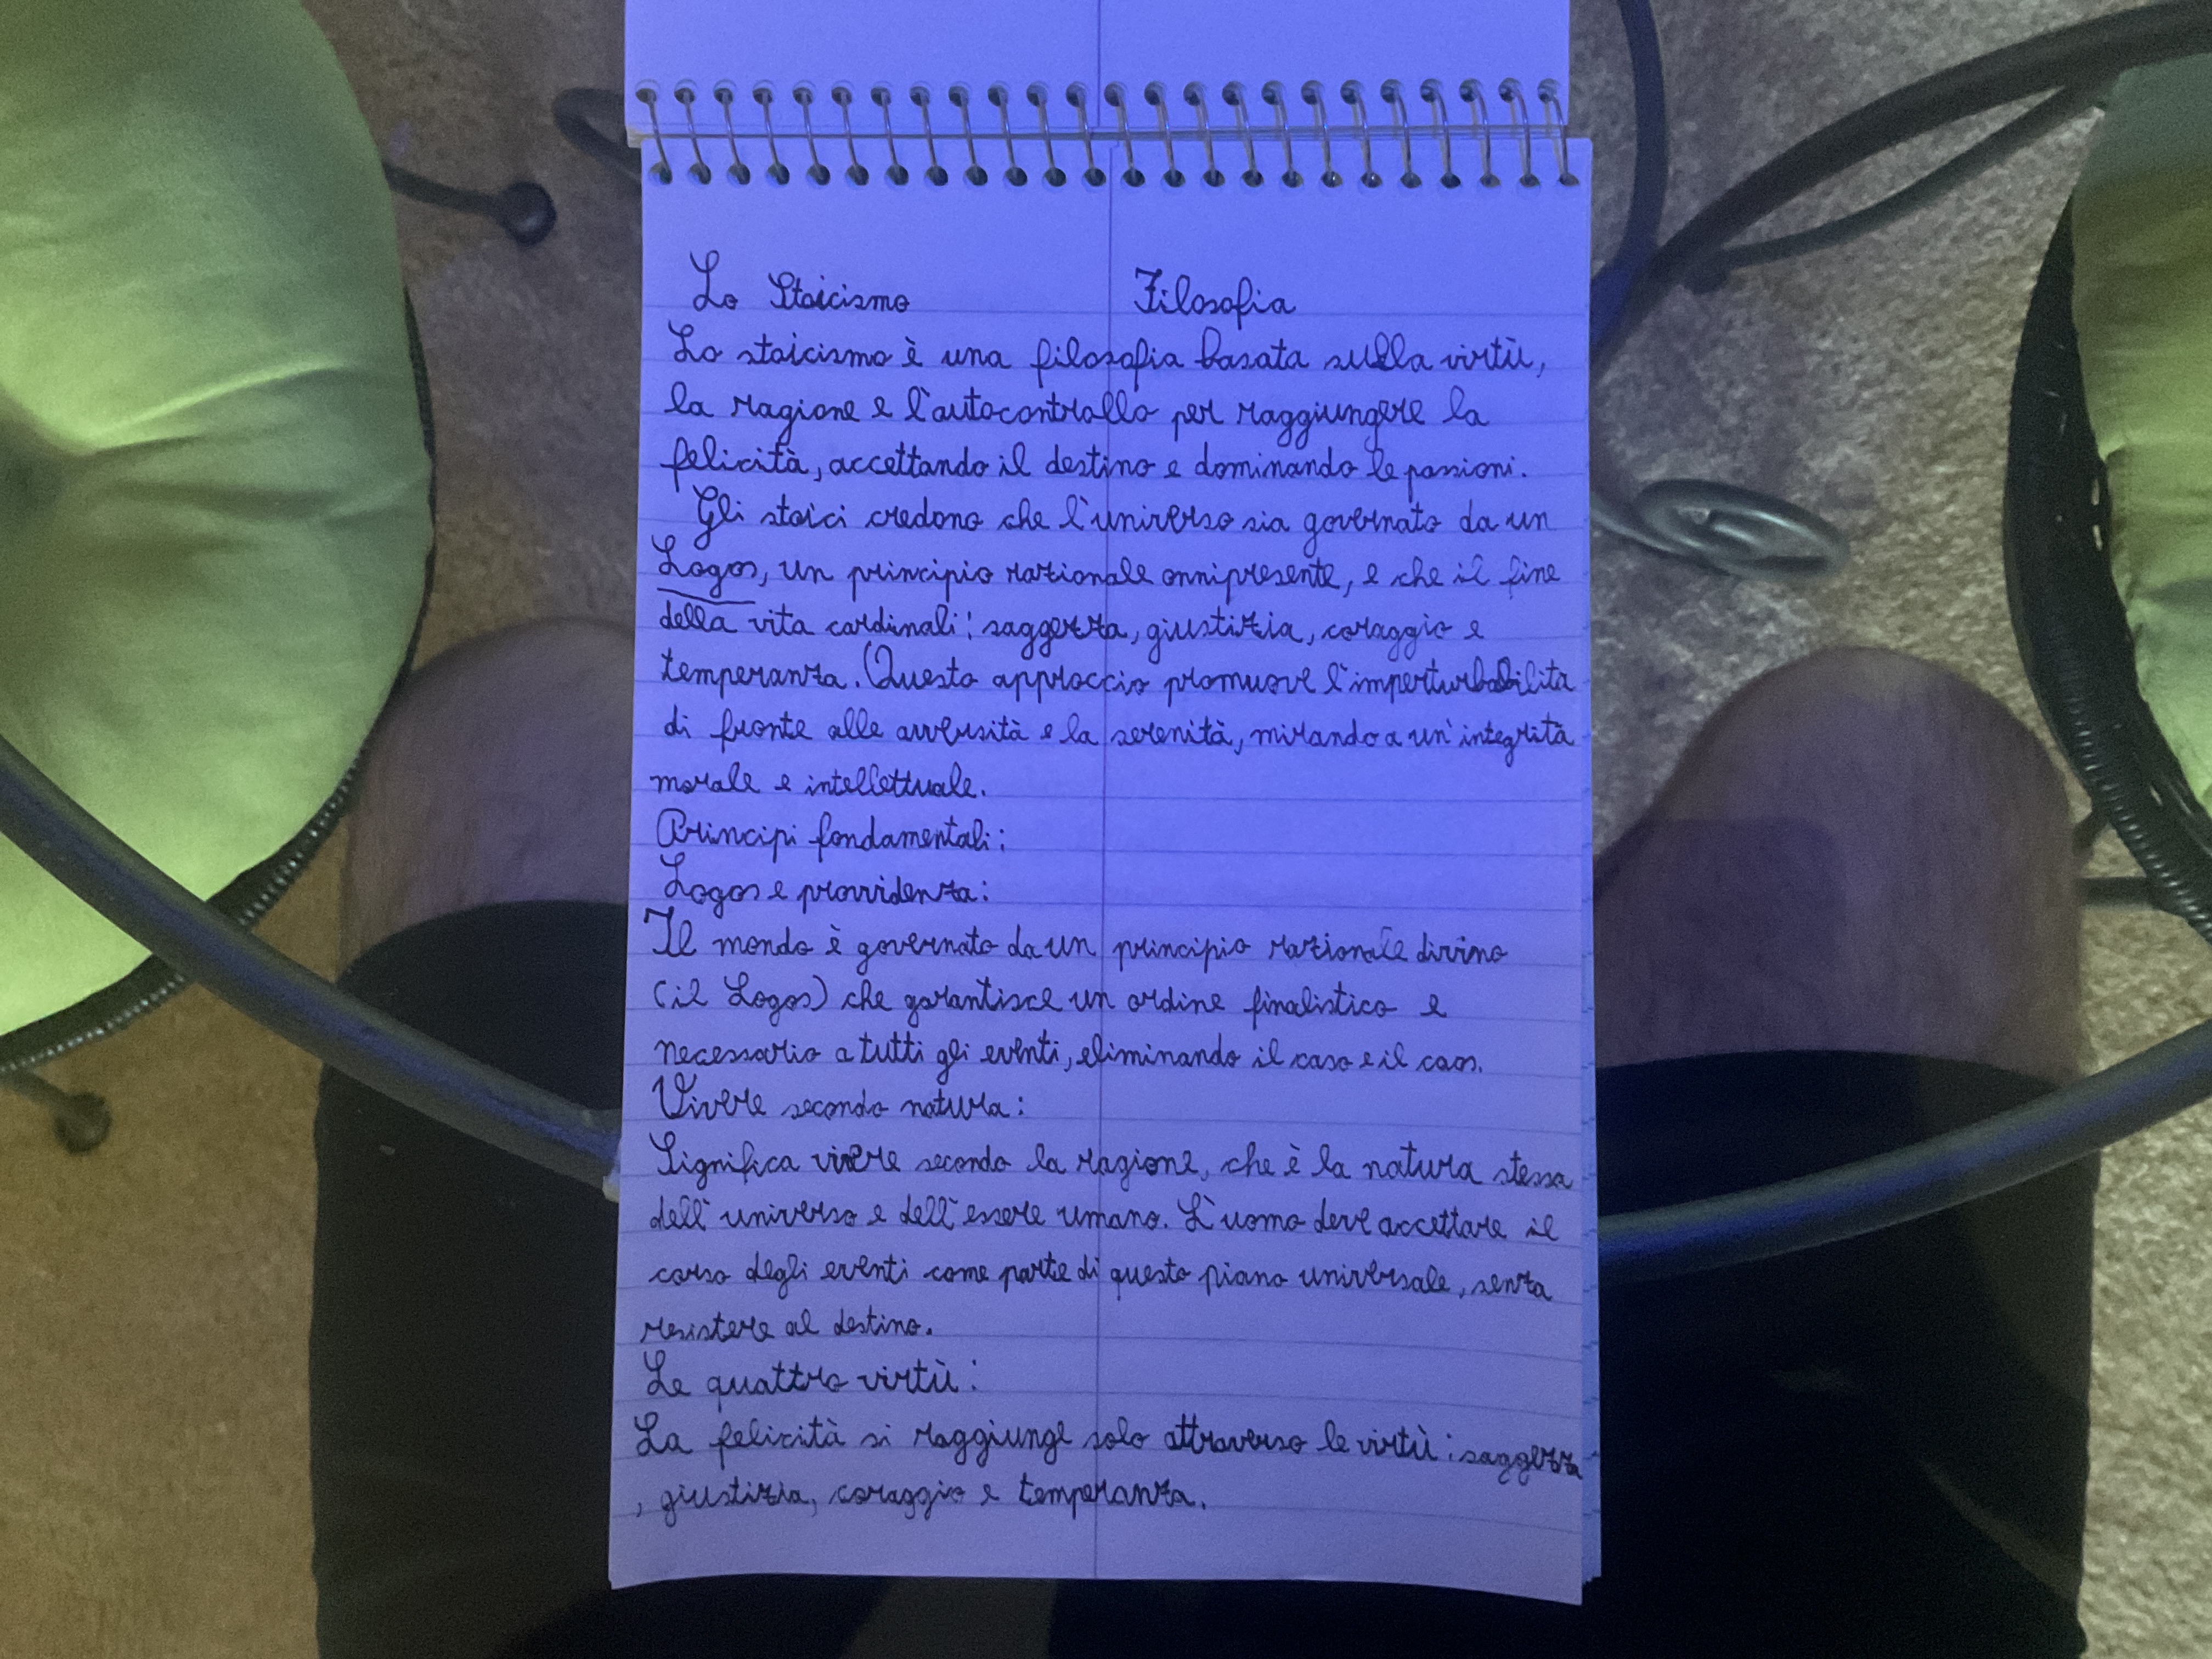 Lo Stoicismo Filosofia
Lo stoicismo è una filosofia basata sulla virtù,
la ragione e l'autocontrollo per raggiungere la
felicità, accettando il destino e dominando le passioni.
Gli stoici credono che l'universo sia governato da un
Logos, un principio razionale onnipresente, e che il fine
della vita cardinali: saggezza, giustizia, coraggio e
temperanza. Questo approccio promuove l'imperturbabilità
di fronte alle avversità e la serenità, mirando a un'integrità
morale e intellettuale.
Principi fondamentali:
Logos e provvidenza:
Il mondo è governato da un principio razionale divino
(il Logos) che garantisce un ordine finalistico e
necessario a tutti gli eventi, eliminando il caso e il caos.
Vivere secondo natura:
Significa vivere secondo la ragione, che è la natura stessa
dell'universo e dell'essere umano. L'uomo deve accettare il
corso degli eventi come parte di questo piano universale, senza
resistere al destino.
Le quattro virtù:
La felicità si raggiunge solo attraverso le virtù: saggezza
, giustizia, coraggio e temperanza.